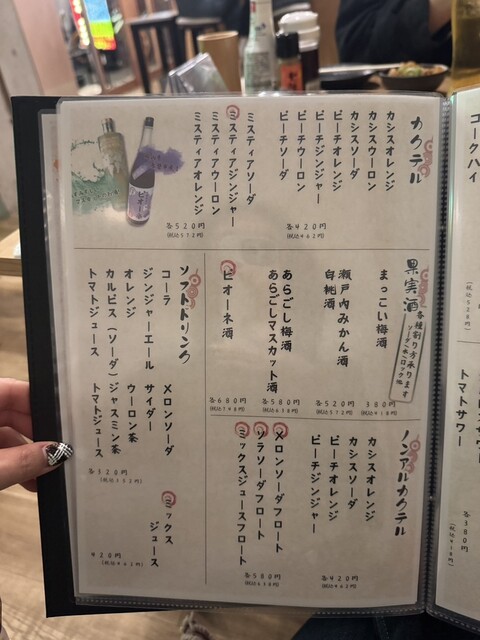 カクテル
カシスオレンジ
カシスウーロン
カシスソーダ
ピーチオレンジ
ピーチジンジャー
ピーチウーロン
ピーチソーダ
各420円
(税込462円)
ミスティアソーダ
ミスティアジンジャー
ミスティアウーロン
ミスティアオレンジ
各520円
(税込572円)
果実酒
各種割り方承ります
ソーダ・水・ロック他
まっこい梅酒
380円
(税込418円)
瀬戸内みかん酒
白桃酒
各520円
(税込572円)
あらごし梅酒
あらごしマスカット酒
各580円
(税込638円)
ピオーネ酒
各680円
(税込748円)
ソフトドリンク
コーラ
ジンジャーエール
オレンジ
カルピス(ソーダ)
トマトジュース
メロンソーダ
サイダー
ウーロン茶
ジャスミン茶
トマトジュース
各320円
(税込352円)
ミックス
ジュース
420円
(税込462円)
ノンアルカクテル
カシスオレンジ
カシスソーダ
ピーチオレンジ
ピーチジンジャー
各420円
(税込462円)
メロンソーダフロート
コーラソーダフロート
ミックスジュースフロート
各580円
(税込638円)
コークハイ
トマトサワー
各380円
(税込418円)